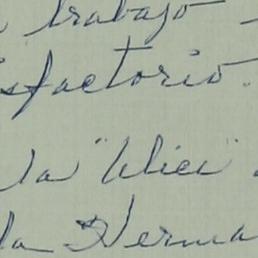 trabajo
sfactorio.
la "Ulici"
la Herma